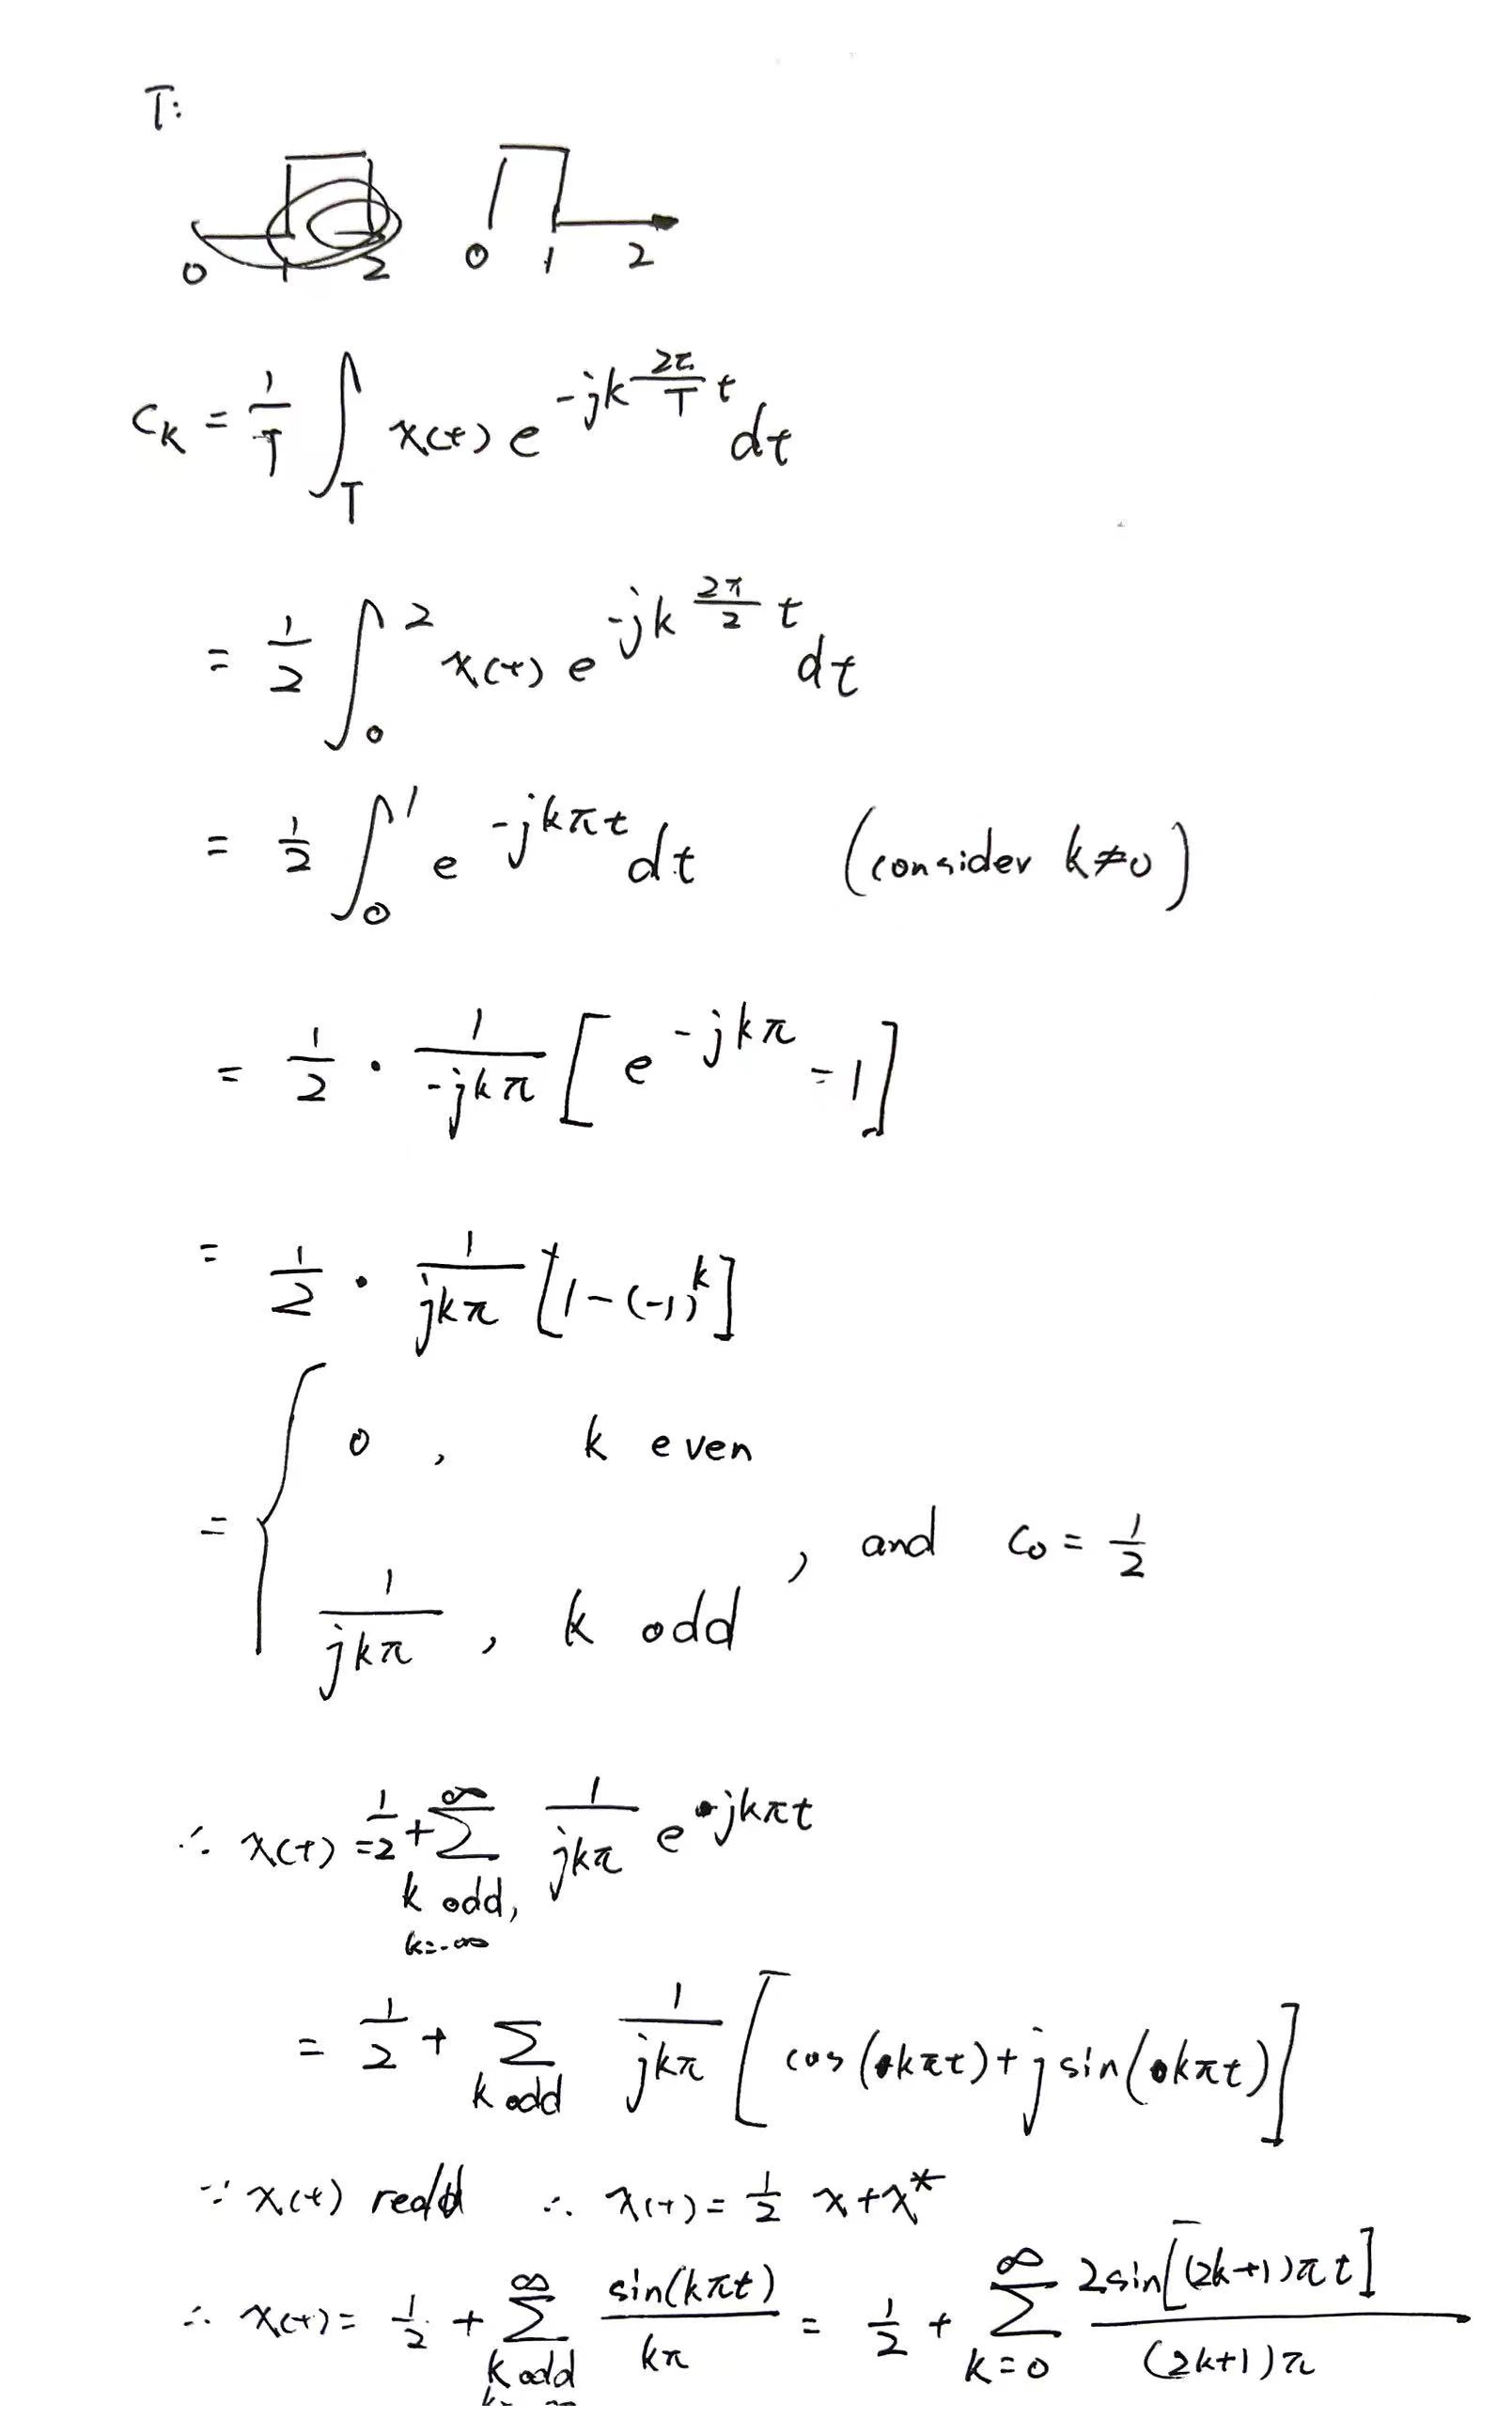 T:
0 1 2 0 1 2
c_k = 1/T ∫_T x(t) e^{-jk 2π/T t} dt
= 1/2 ∫_0^2 x(t) e^{-jk 2π/2 t} dt
= 1/2 ∫_0^1 e^{-jkπt} dt (consider k≠0)
= 1/2 · 1/(-jkπ) [e^{-jkπ} - 1]
= 1/2 · 1/(jkπ) [1-(-1)^k]
= { 0, k even
1/(jkπ), k odd , and c_0 = 1/2
∴ x(t) = 1/2 + ∑_{k odd, k=-∞}^{∞} 1/(jkπ) e^{jkπt}
= 1/2 + ∑_{k odd} 1/(jkπ) [cos(kπt) + j sin(kπt)]
∵ x(t) real ∴ x(t) = 1/2 x + x*
∴ x(t) = 1/2 + ∑_{k odd}^{∞} sin(kπt)/(kπ) = 1/2 + ∑_{k=0}^{∞} 2sin[(2k+1)πt]/((2k+1)π)